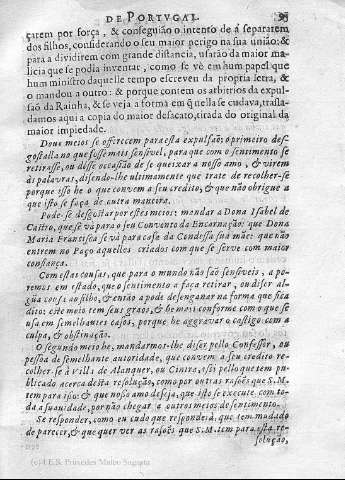 DE PORTVGAL.
çarem por força, & conseguião o intento de á separarem
dos filhos, considerando o seu maior perigo na sua união; &
para a dividirem com grande distancia, usarão da maior ma-
licia que se podia inventar, como se vè em hum papel que
hum ministro daquelle tempo escreveu da propria letra, &
o mandou a outro: & porque contem os arbitrios da expul-
saõ da Rainha, & se veja a forma em q̃ nella se cudava, trasla-
damos aqui a copia do maior desacato, tirada do original da
maior impiedade.
Dous meios se offrecem para esta expulsaõ; o primeiro des-
gostalla no que fosse mais sensivel, para que com o sentimento se
retirasse, ou disse occasiaõ de se queixar a nosso amo, & virem
às palavras, disendo-lhe ultimamente que trate de recolher-se
porque isso he o que convem a seu credito, & que não obrigue a
que isto se faça de outra maneira.
Pode-se desgostar por estes meios: mandar a Dona Isabel de
Castro, que se và para o seu Convento da Encarnação: que Dona
Maria Francisca se và para casa da Condessa sua mãe: que não
entrem no Paço aquelles criados com que se serve com maior
confiança.
Com estas cousas, que para o mundo não saõ sensiveis, a po-
remos em estado, que o sentimento a faça retirar, ou diser al-
gũa cousa ao filho, & então a pode desenganar na forma que fica
dito: este meio tem seus graos, & he mais conforme com o que se
usa em semelhantes casos, porque he aggravar o castigo com a
culpa, & obstinação.
O segundo meio he, mandarmos-lhe diser pello Confessor, ou
pessoa de semelhante autoridade, que convem a seu credito re-
colher-se à Villa de Alanquer, ou Cintra, assi pello que tem pu-
blicado acerca desta resolução, como por outras rasões que S.M.
tem para isso: & que nosso amo deseja, que isto se execute com to-
da a suavidade, por não chegar a outros meios de sentimento.
Se responder, como eu cudo que responderà, que tem mudado
de parecer, & que quer ver as rasões que S.M. tem para esta re-
solução,